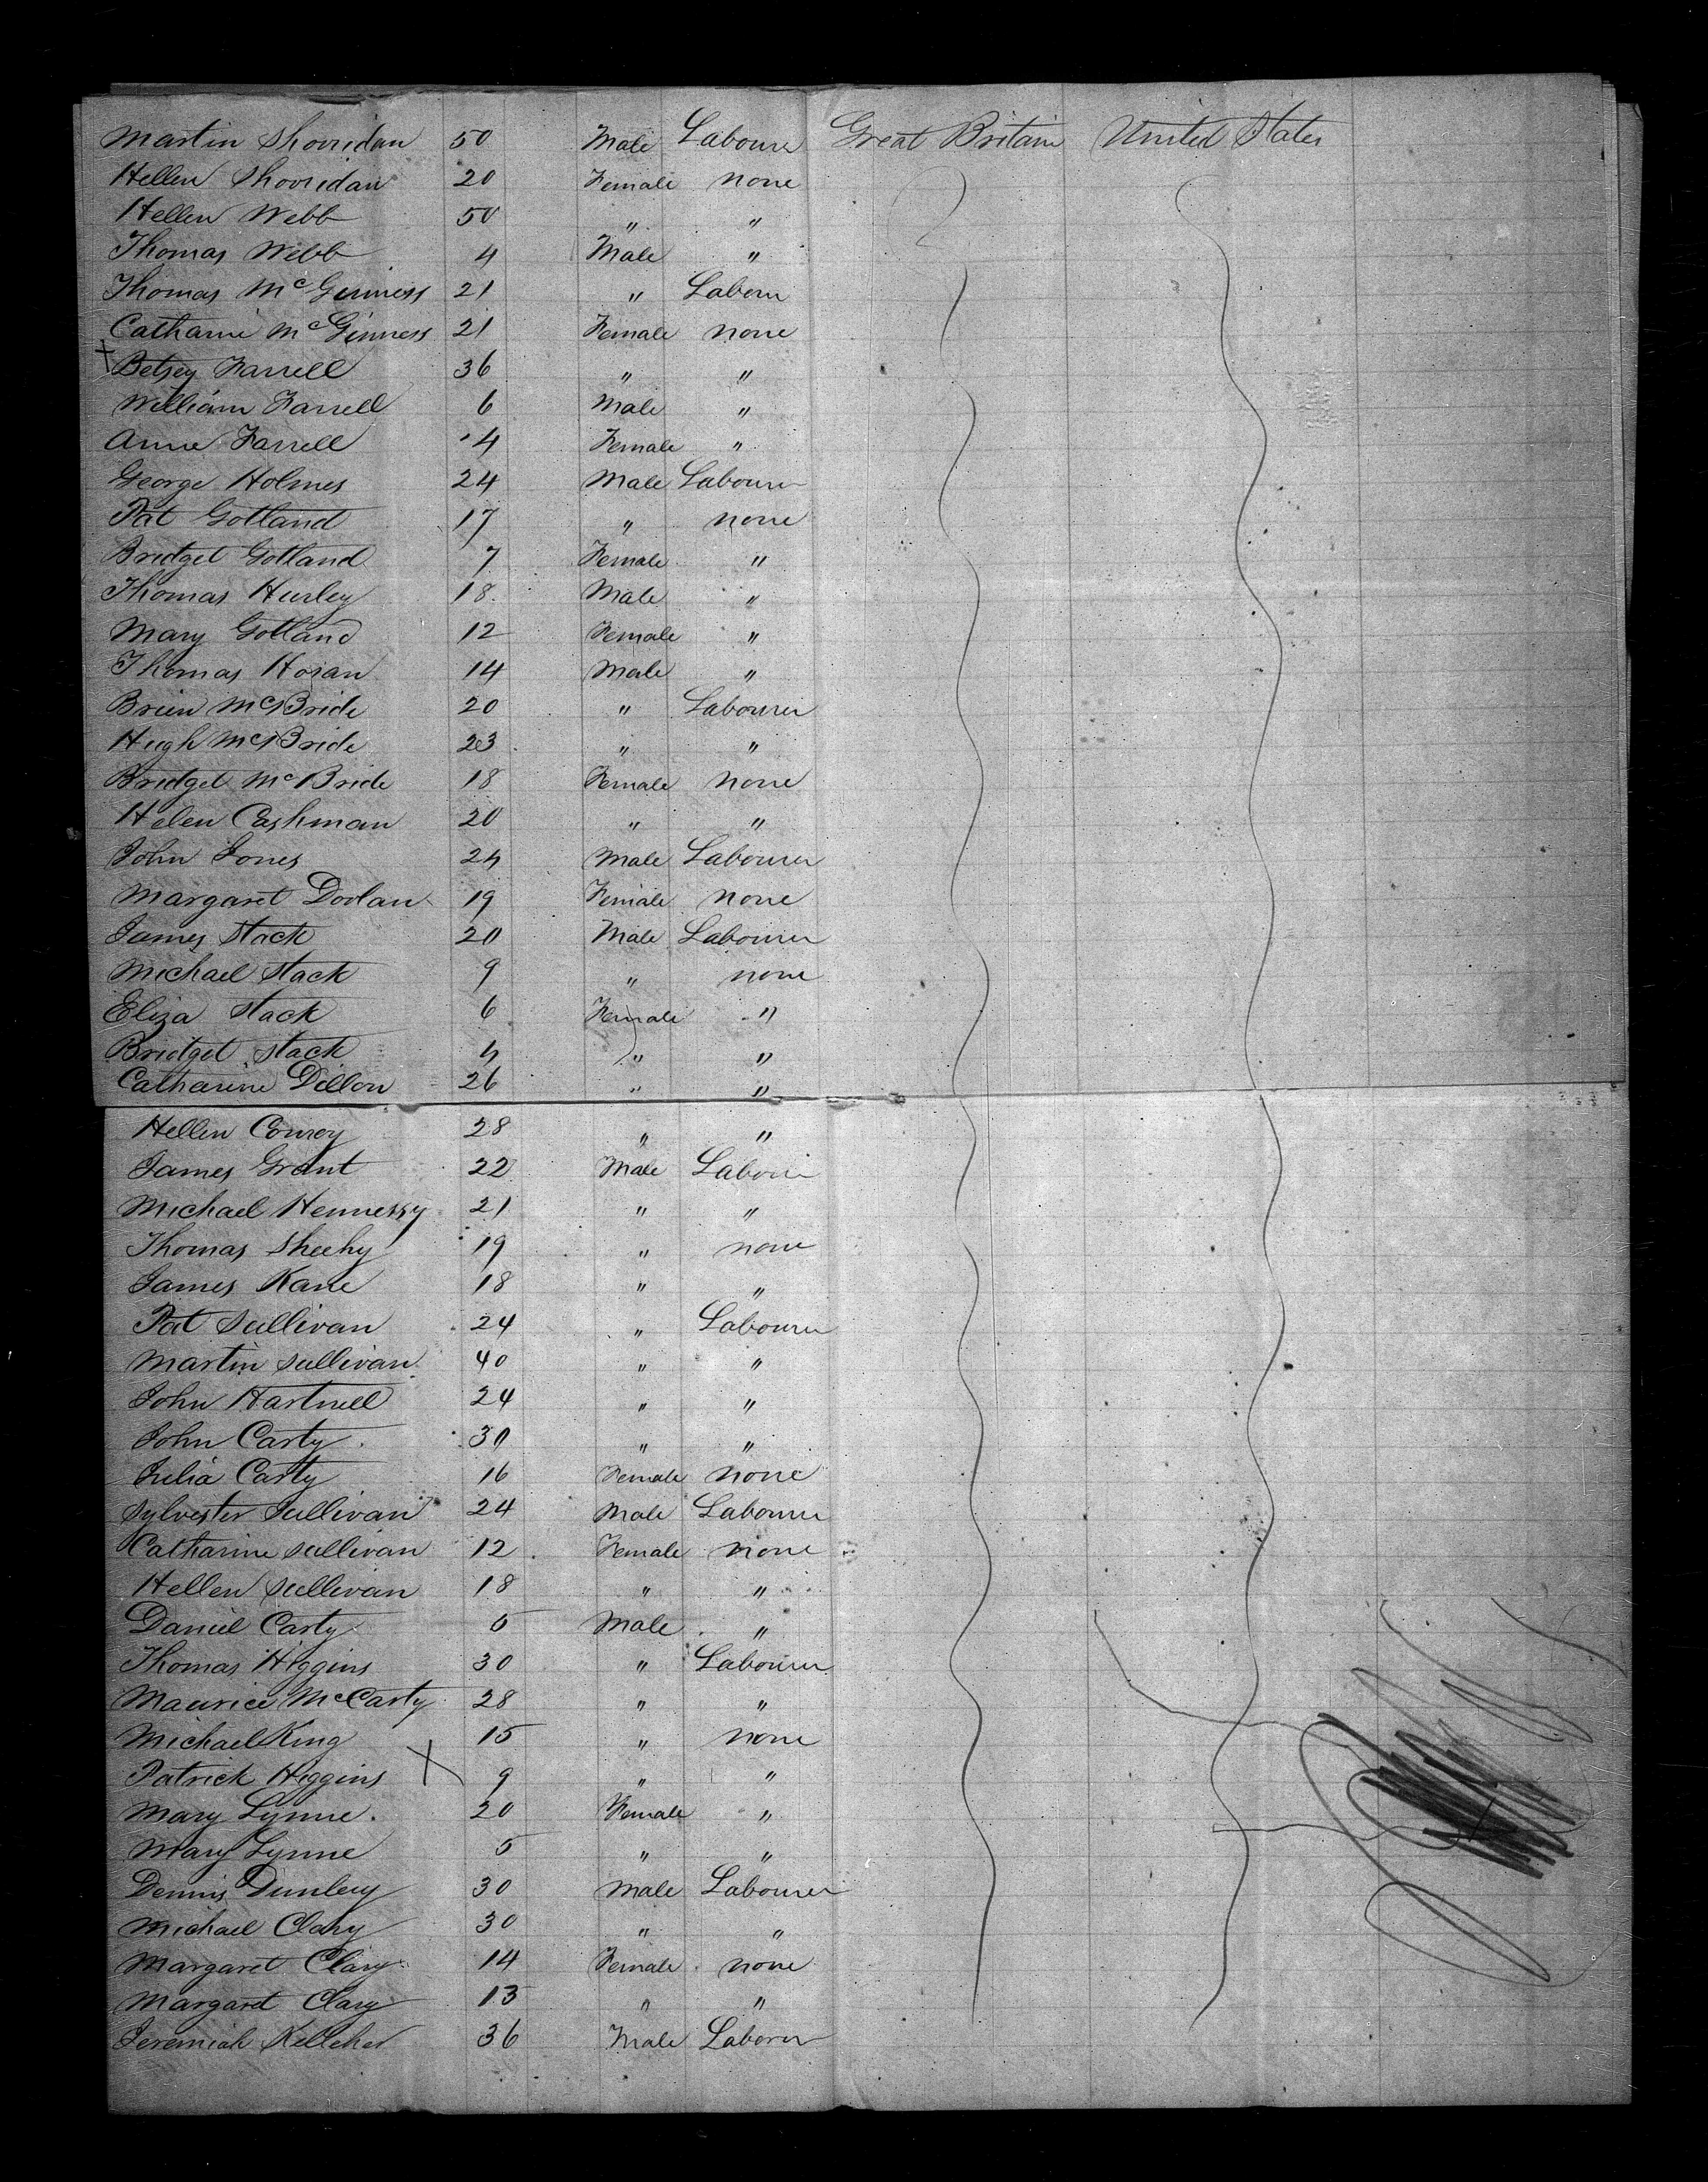 Martin Shorridan 50 Male Labourer Great Britain United States
Hellen Shorridan 20 Female none
Hellen Webb 50 " "
Thomas Webb 4 Male "
Thomas McGinness 21 " Laborer
Catharine McGinness 21 Female none
+ Betsey Farrell 36 " "
William Farrell 6 Male "
Anne Farrell 4 Female "
George Holmes 24 Male Labourer
Pat Gotland 17 " none
Bridget Gotland 7 Female "
Thomas Hurley 18 Male "
Mary Gotland 12 Female "
Thomas Horan 14 Male "
Brien McBride 20 " Labourer
Hugh McBride 23 " "
Bridget McBride 18 Female none
Helen Cashman 20 " "
John Jones 24 Male Labourer
Margaret Doolan 19 Female none
James Stack 20 Male Labourer
Michael Stack 9 " none
Eliza Stack 6 Female "
Bridget Stack 4 " "
Catharine Dillon 26 " "
Hellen Conroy 28 " "
James Grant 22 Male Labourer
Michael Hennessy 21 " "
Thomas Sheehy 19 " none
James Kane 18 " "
Pat Sullivan 24 " Labourer
Martin Sullivan 40 " "
John Hartnell 24 " "
John Carty 30 " "
Julia Carty 16 Female none
Sylvester Sullivan 24 Male Labourer
Catharine Sullivan 12 Female none
Hellen Sullivan 18 " "
Daniel Carty 5 Male "
Thomas Higgins 30 " Labourer
Maurice McCarty 28 " "
Michael King 15 " none
Patrick Higgins X 9 " "
Mary Lynne 20 Female "
Mary Lynne 5 " "
Dennis Dunlevy 30 Male Labourer
Michael Clary 30 " "
Margaret Clary 14 Female none
Margaret Clary 13 " "
Jeremiah Kelleher 36 Male Laborer